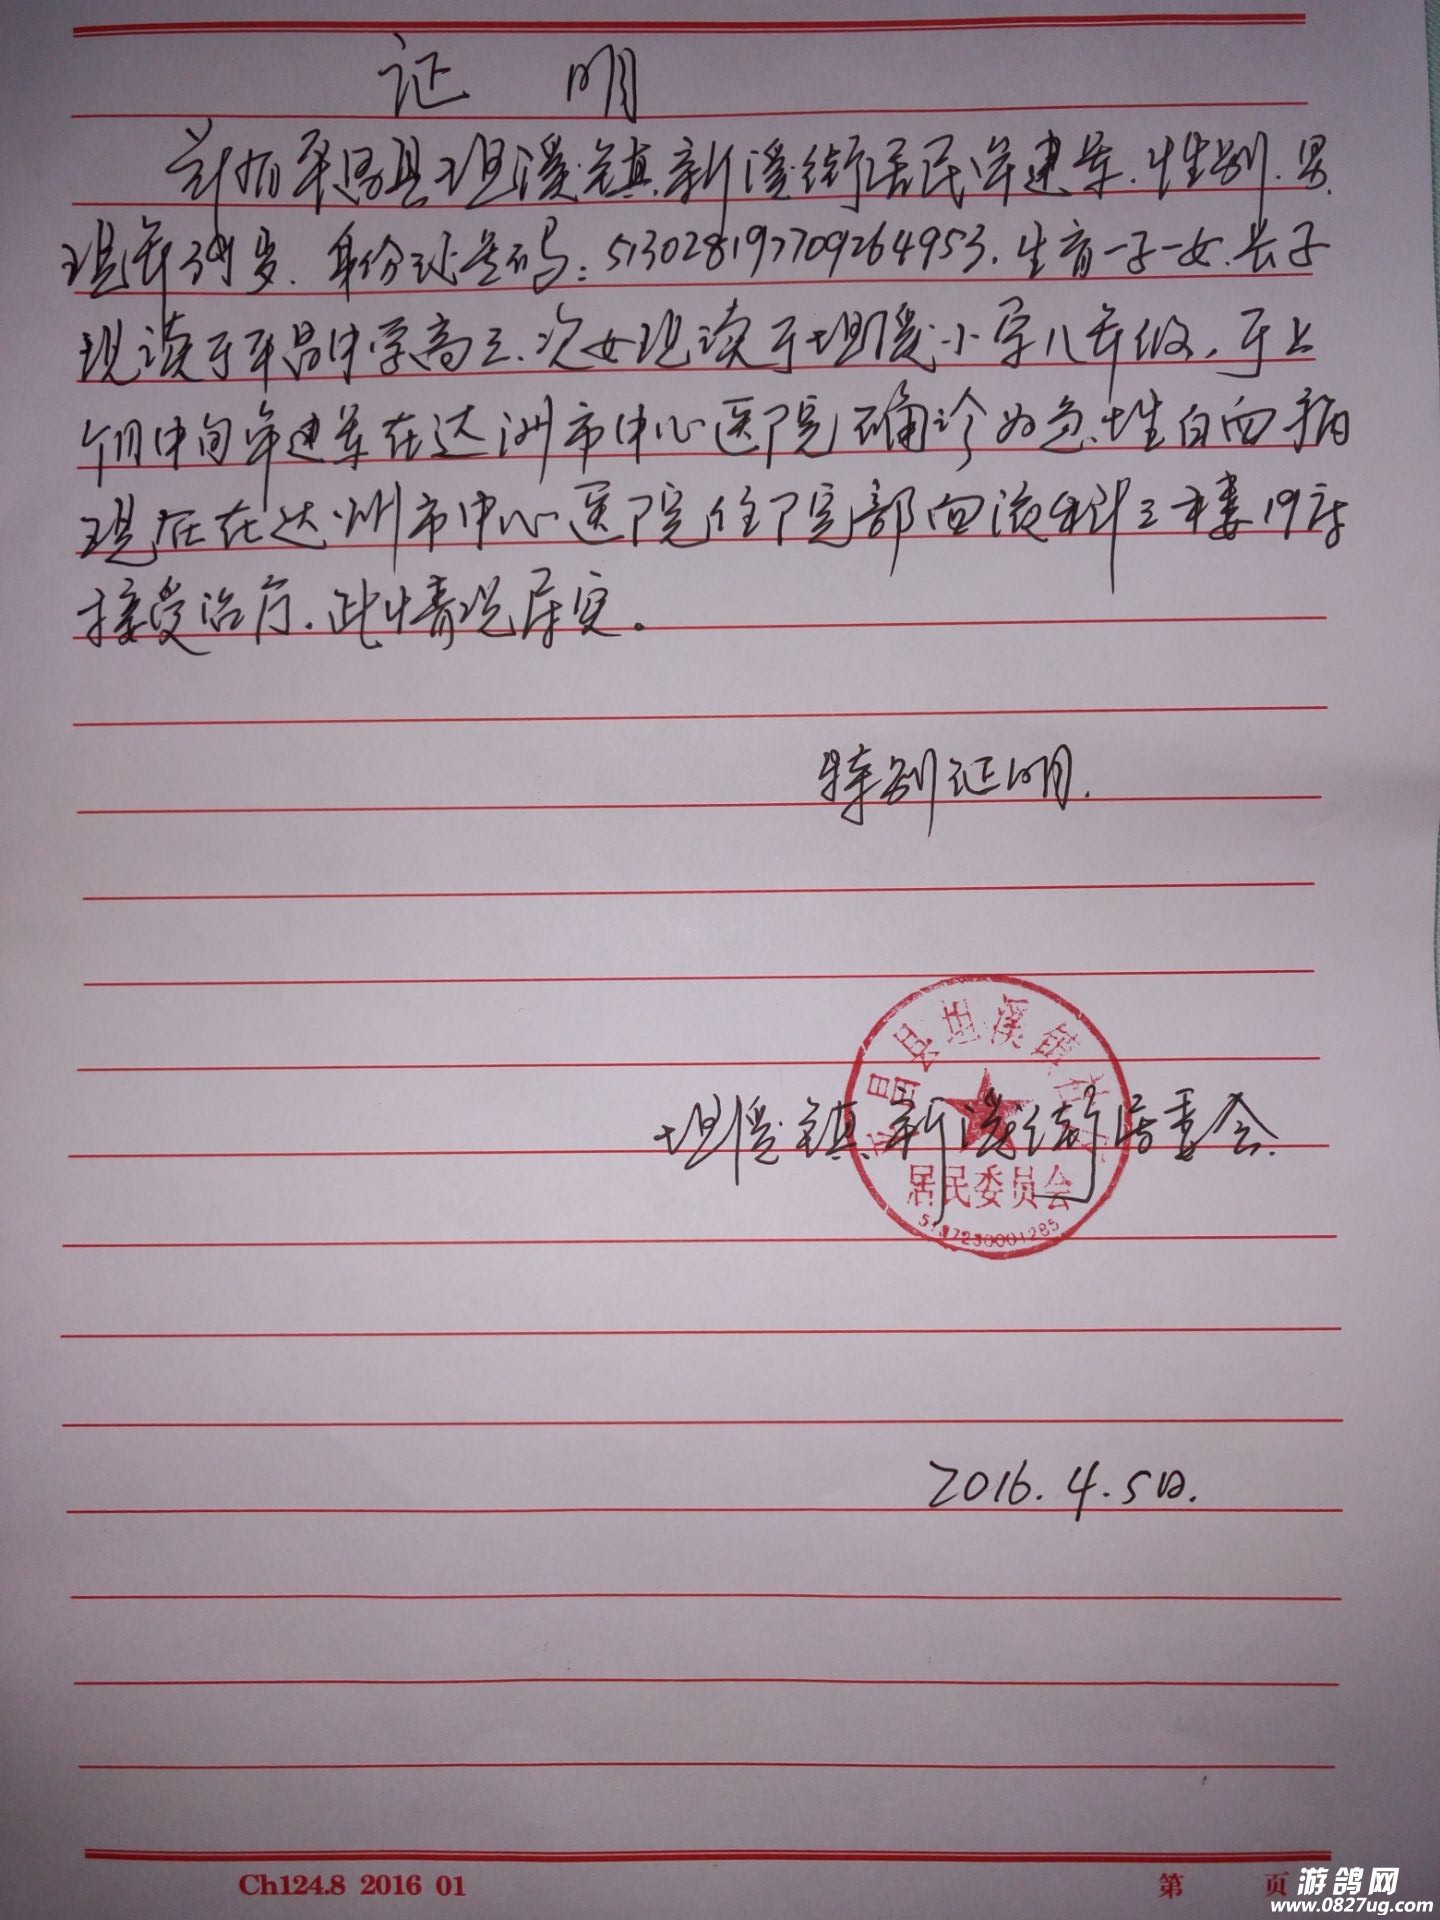 证 明
兹有平昌县坦溪镇新溪街居民年建军.性别.男.
现年39岁.身份证号码:513028197709264953.生育一子一女.长子
现读于平昌中学高三.次女现读于坦溪小学八年级.于上
个月中旬年建军在达洲市中心医院确诊为急性白血病
现在在达州市中心医院住院部血液科三楼19床
接受治疗.此情况属实。
特别证明.
昌县坦溪镇
坦溪镇新溪街居委会.
居民委员会
5137230001285
2016.4.5日.
Ch124.8 2016 01
第 页
游鸽网
www.0827ug.com